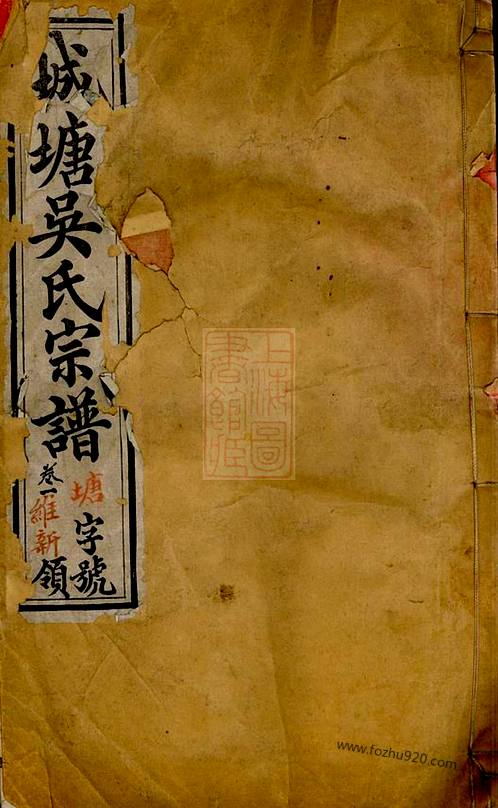 城塘吳氏宗譜
卷一
塘字號
維新領
上海圖
書館
www.fozhu920.com